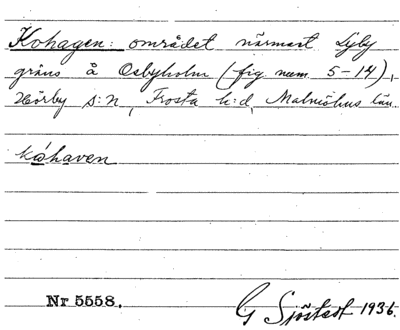 Kohagen: området närmast Lyby
gräns å Osbyholm (fig. num. 5-14),
Hörby s:n, Frosta h:d, Malmöhus län.
kóhaven
Nr 5558.
G Sjöstedt 1936.